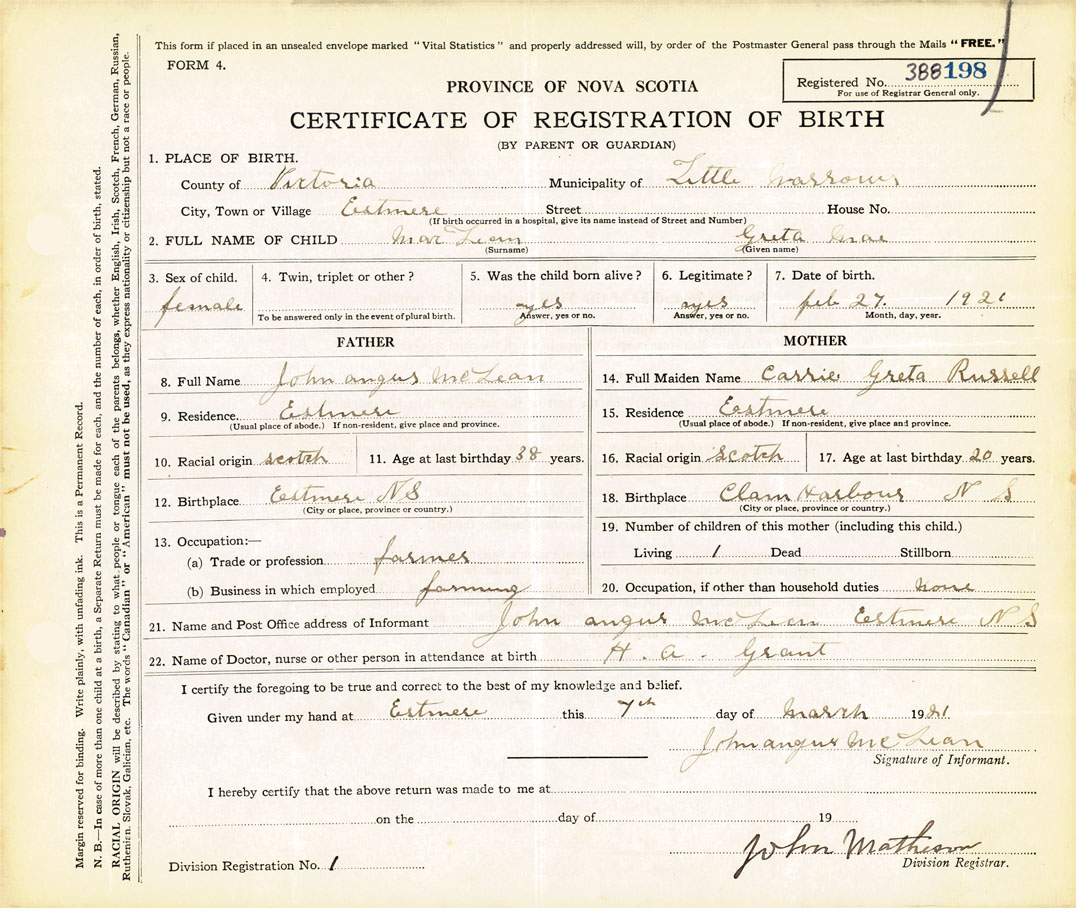 This form if placed in an unsealed envelope marked "Vital Statistics" and properly addressed will, by order of the Postmaster General pass through the Mails "FREE."
FORM 4.
Registered No. 388198
For use of Registrar General only.
PROVINCE OF NOVA SCOTIA
CERTIFICATE OF REGISTRATION OF BIRTH
(BY PARENT OR GUARDIAN)
1. PLACE OF BIRTH.
County of Victoria Municipality of Little Narrows
City, Town or Village Estmere Street House No.
(If birth occurred in a hospital, give its name instead of Street and Number)
2. FULL NAME OF CHILD MacLean Greta Mae
(Surname) (Given name)
3. Sex of child. 4. Twin, triplet or other? 5. Was the child born alive? 6. Legitimate? 7. Date of birth.
female yes yes feb 27. 1921
To be answered only in the event of plural birth. Answer, yes or no. Answer, yes or no. Month, day, year.
FATHER
8. Full Name John angus McLean
9. Residence. Estmere
(Usual place of abode.) If non-resident, give place and province.
10. Racial origin scotch 11. Age at last birthday 38 years.
12. Birthplace Estmere NS
(City or place, province or country.)
13. Occupation:—
(a) Trade or profession farmer
(b) Business in which employed farming
MOTHER
14. Full Maiden Name Carrie Greta Russell
15. Residence Eestmere
(Usual place of abode.) If non-resident, give place and province.
16. Racial origin Scotch 17. Age at last birthday 20 years.
18. Birthplace Clam Harbour N S
(City or place, province or country.)
19. Number of children of this mother (including this child.)
Living 1 Dead Stillborn
20. Occupation, if other than household duties none
21. Name and Post Office address of Informant John angus McLean Estmere N S
22. Name of Doctor, nurse or other person in attendance at birth H. a. Grant
I certify the foregoing to be true and correct to the best of my knowledge and belief.
Given under my hand at Estmere this 7th day of March 1921.
John angus McLean
Signature of Informant.
I hereby certify that the above return was made to me at
on the day of 19
John Matheson
Division Registrar.
Division Registration No. 1
Margin reserved for binding. Write plainly, with unfading ink. This is a Permanent Record.
N. B.—In case of more than one child at a birth, a Separate Return must be made for each, and the number of each, in order of birth, stated.
RACIAL ORIGIN will be described by stating to what people or tongue each of the parents belongs, whether English, Irish, Scotch, French, German, Russian,
Ruthenian, Slovak, Galician, etc. The words "Canadian" or "American" must not be used, as they express nationality or citizenship but not a race or people.